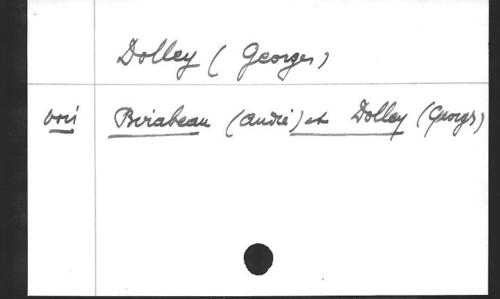 Dolley (Georges)
voir Birabeau (André) et Dolley (Georges)